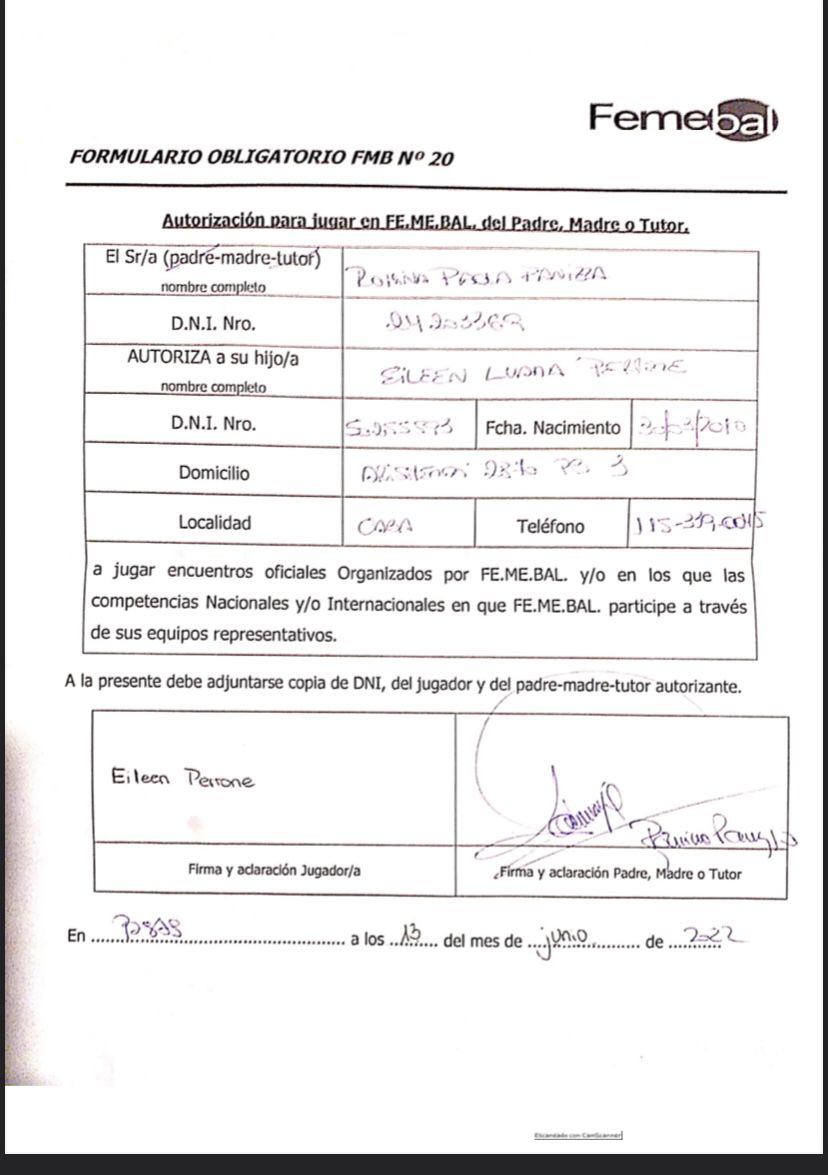 Femebal
FORMULARIO OBLIGATORIO FMB Nº 20
Autorización para jugar en FE.ME.BAL. del Padre, Madre o Tutor.
El Sr/a (padre-madre-tutor)
nombre completo
D.N.I. Nro.
AUTORIZA a su hijo/a
nombre completo
EILEEN LUANA PERRONE
D.N.I. Nro.
Fcha. Nacimiento
Domicilio
Localidad
CABA
Teléfono
a jugar encuentros oficiales Organizados por FE.ME.BAL. y/o en los que las
competencias Nacionales y/o Internacionales en que FE.ME.BAL. participe a través
de sus equipos representativos.
A la presente debe adjuntarse copia de DNI, del jugador y del padre-madre-tutor autorizante.
Eileen Perrone
Firma y aclaración Jugador/a
Firma y aclaración Padre, Madre o Tutor
En .......... a los ..13.... del mes de ....junio.......... de ...2022
Escaneado con CamScanner